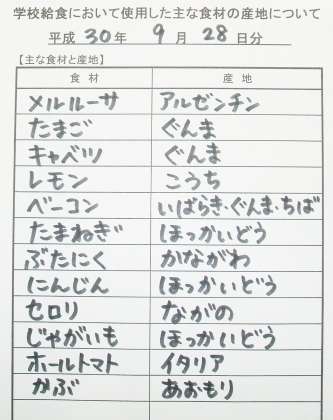 学校給食において使用した主な食材の産地について
平成 30 年 9 月 28 日分
【主な食材と産地】
食材 産地
メルルーサ アルゼンチン
たまご ぐんま
キャベツ ぐんま
レモン こうち
ベーコン いばらき・ぐんま・ちば
たまねぎ ほっかいどう
ぶたにく かながわ
にんじん ほっかいどう
セロリ ながの
じゃがいも ほっかいどう
ホールトマト イタリア
かぶ あおもり